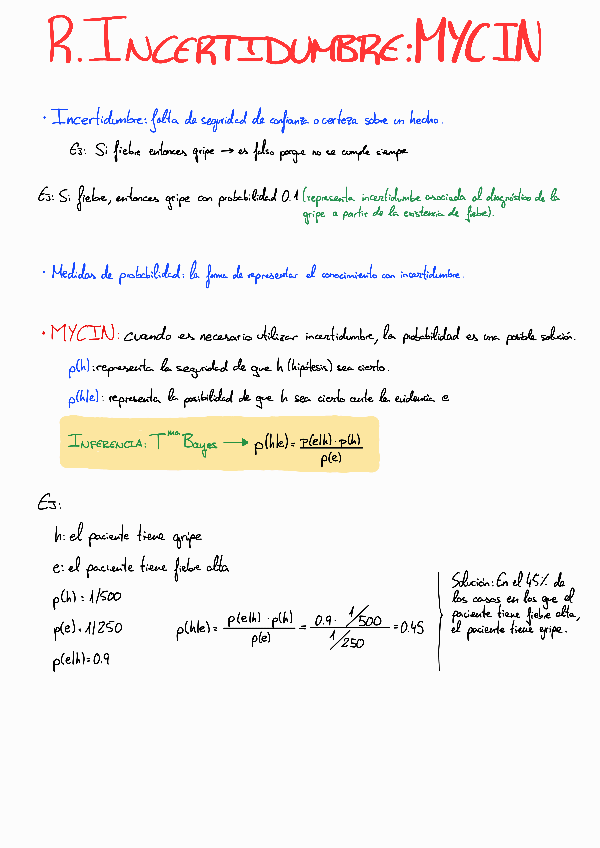 R. INCERTIDUMBRE: MYCIN
· Incertidumbre: falta de seguridad de confianza o certeza sobre un hecho.
Ej: Si fiebre entonces gripe → es falso porque no se cumple siempre
Ej: Si fiebre, entonces gripe con probabilidad 0.1 (representa incertidumbre asociada al diagnóstico de la
gripe a partir de la existencia de fiebre).
· Medidas de probabilidad: la forma de representar el conocimiento con incertidumbre.
· MYCIN: cuando es necesario utilizar incertidumbre, la probabilidad es una posible solución.
p(h): representa la seguridad de que h (hipótesis) sea cierto.
p(h|e): representa la posibilidad de que h sea cierto ante la evidencia e
INFERENCIA: Tma Bayes → p(h|e) = p(e|h) · p(h) / p(e)
Ej:
h: el paciente tiene gripe
e: el paciente tiene fiebre alta
p(h) = 1/500
p(e) = 1/250
p(e|h) = 0.9
p(h|e) = p(e|h) · p(h) / p(e) = 0.9 · 1/500 / 1/250 = 0.45
Solución: En el 45% de
los casos en los que el
paciente tiene fiebre alta,
el paciente tiene gripe.